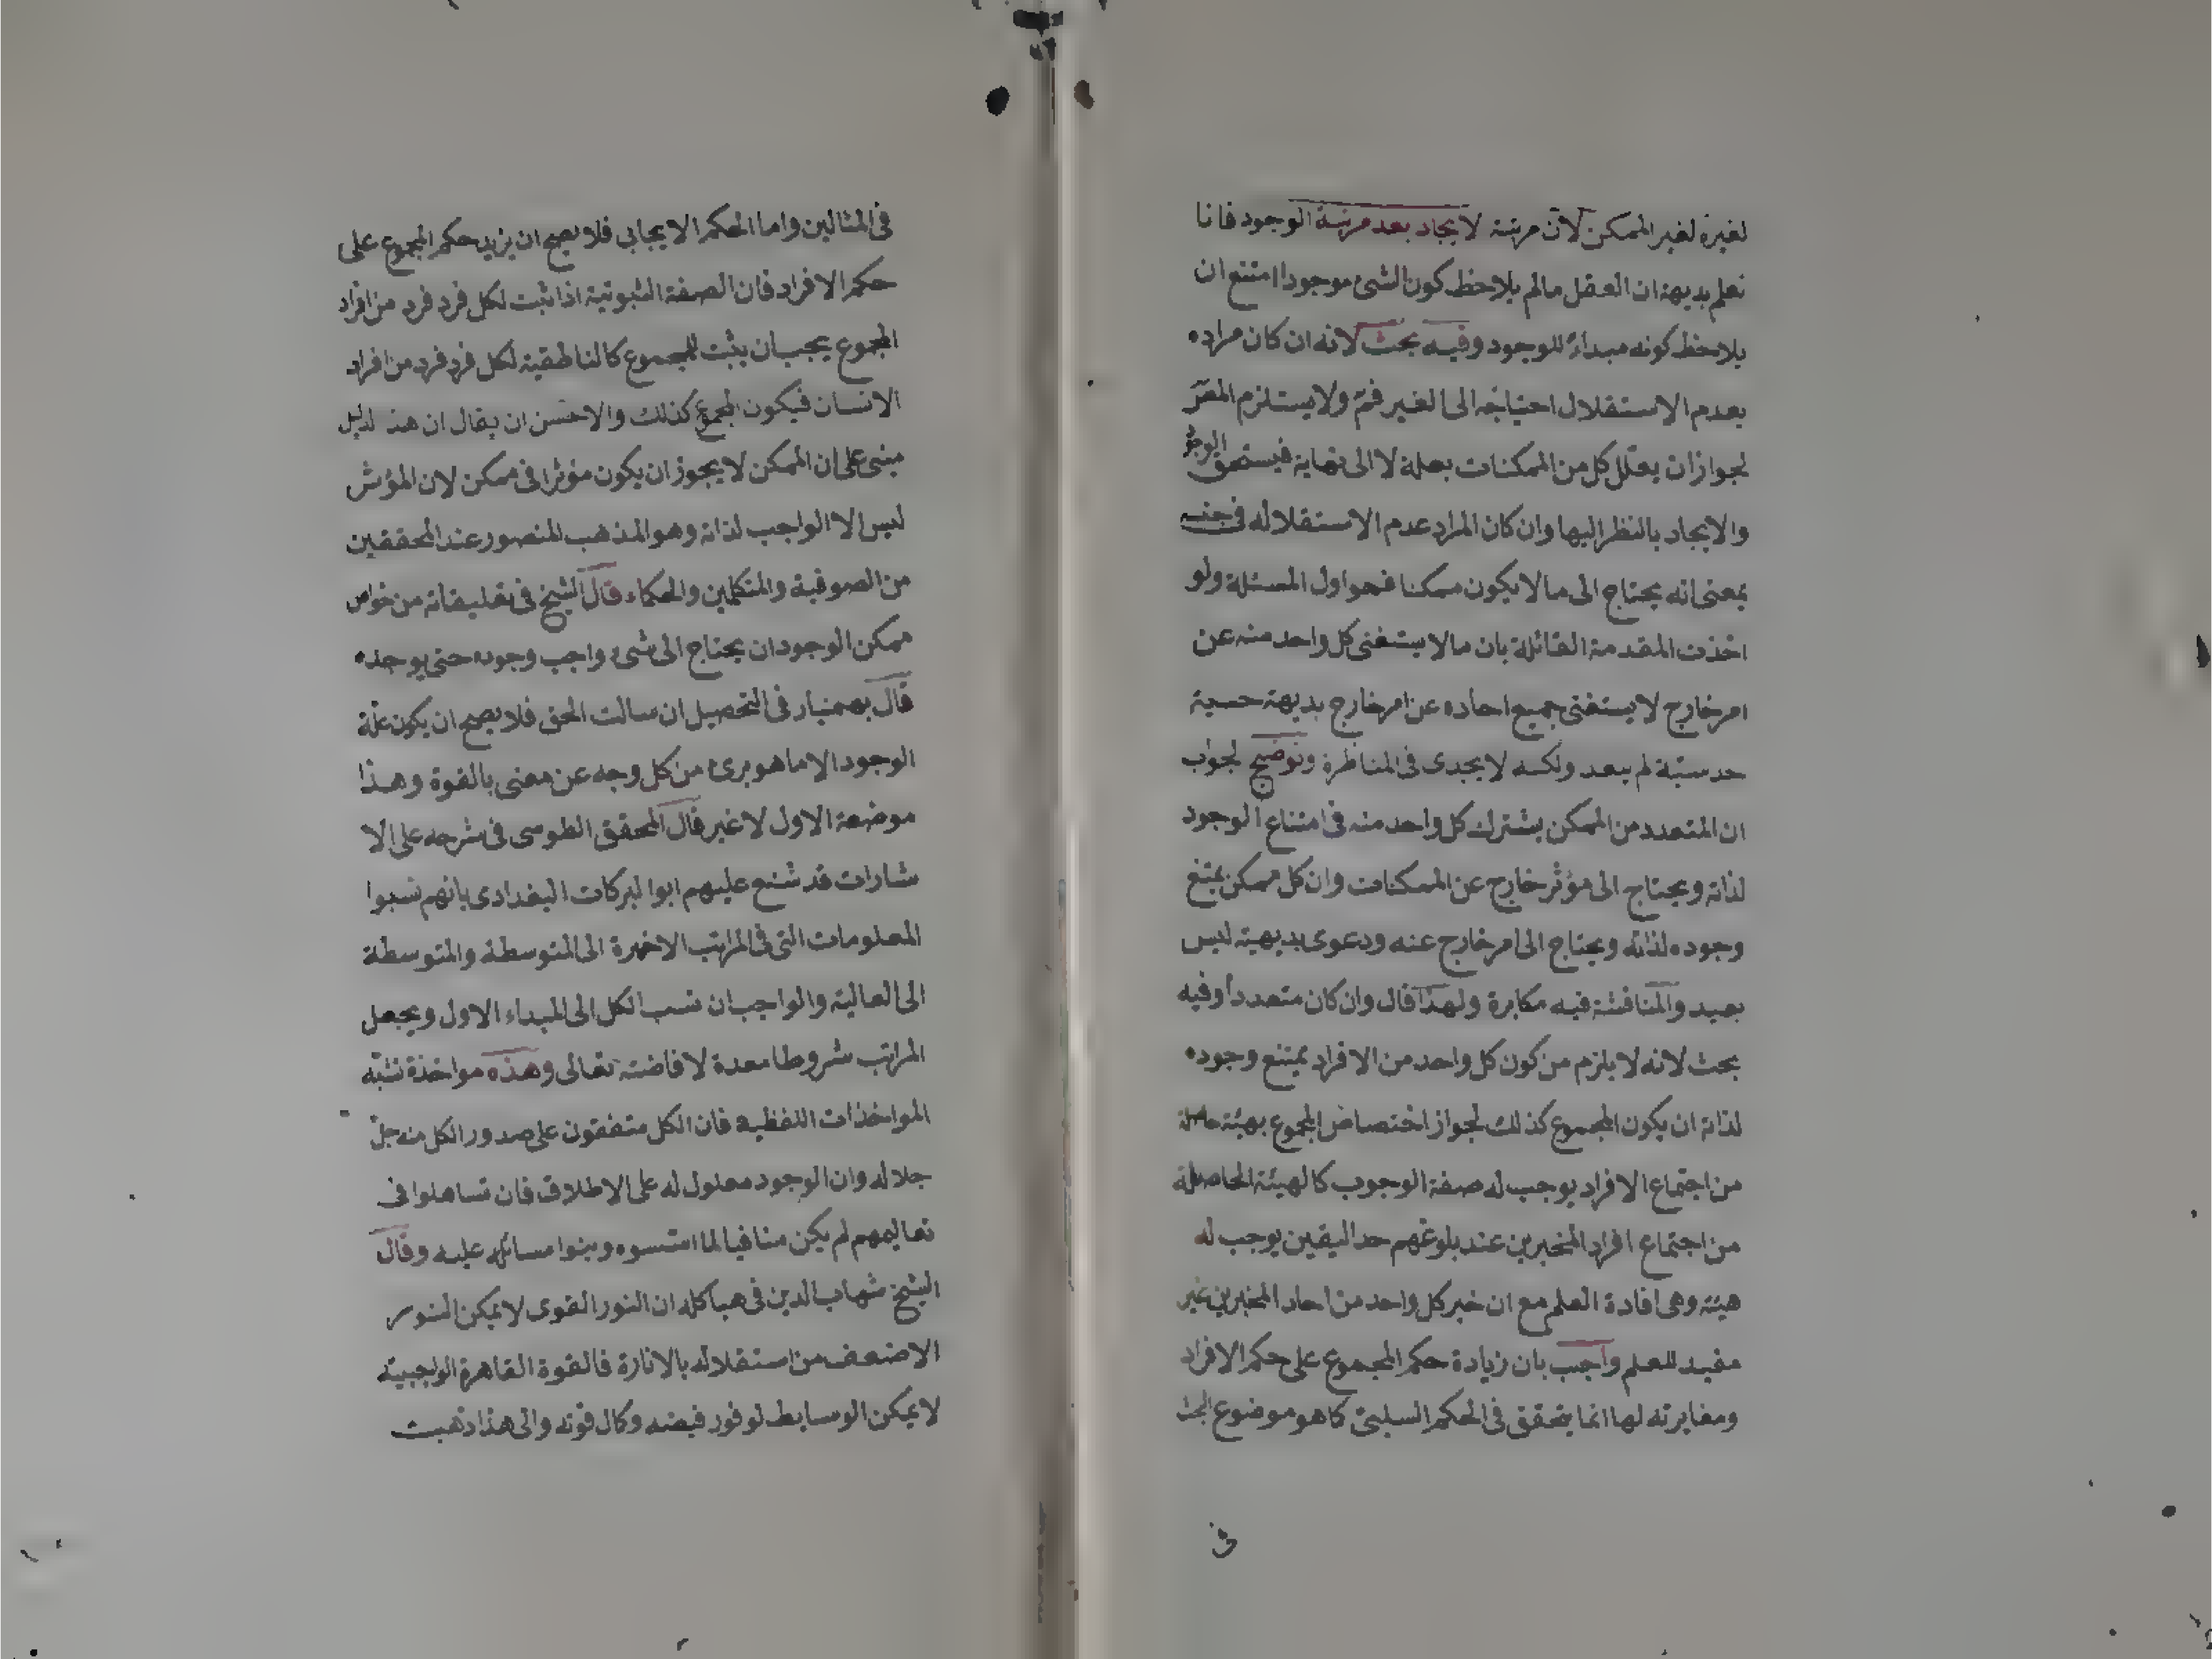 لغيره لغير الممكن لان مرتبة لايجاد بعد مرتبة الوجود فانا
نعلم بديهة ان العقل مالم يلاحظ كون الشئ موجودا امتنع ان
يلاحظ كونه مبداءً للوجود وفيه بحث لانه ان كان مراده
بعدم الاستقلال احتياجه الى الغير فمّ ولايستلزم المقرّ
لجواز ان يعلل كل من الممكنات بعلة لا الى نهاية فيستحق الوجو
والايجاد بالنظر اليها وان كان المراد عدم الاستقلاله فى جنسه
بمعنى انه يحتاج الى ما لا يكون ممكنا فهو اول المسئلة ولو
اخذت المقدمة القائلة بان مالا يستغنى كل واحد منه عن
امر خارج لا يستغنى جميع احاده عن امر خارج بديهة حسية
حدسيّة لم يبعد ولكنه لا يجدى فى المناظرة وتوضيح لجواب
ان المتعدد من الممكن يشترك كل واحد منه فى امتناع الوجود
لذاته ويحتاج الى مؤثر خارج عن الممكنات وان كل ممكن يمتنع
وجوده لذاته ويحتاج الى امر خارج عنه ودعوى بديهية ليس
بعيد والمناقشة فيه مكابرة ولهذا قال وان كان متعدداً وفيه
بحث لانه لا يلزم من كون كل واحد من الافراد يمتنع وجوده
لذاته ان يكون المجموع كذلك لجواز اختصاص المجموع بهيئة حاصلة
من اجتماع الافراد يوجب له صفة الوجوب كالهيئة الحاصلة
من اجتماع افراد المخبرين عند بلوغهم حد اليقين يوجب له
هيئة وهى افادة العلم مع ان خبر كل واحد من احاد المخبرين غير
مفيد للعلم واجيب بان زيادة حكم المجموع على حكم الافراد
ومغايرته لها انما يتحقق فى الحكم السلبىّ كما هو موضوع البحث
فى
فى المثالين واما الحكم الايجابى فلا يصح ان يزيد حكم المجموع على
حكم الافراد فان الصفة الثبوتية اذا ثبت لكل فرد فرد من افراد
المجموع يجب ان يثبت للمجموع كالناطقية لكل فرد فرد من افراد
الانسان فيكون المجموع كذلك والاحسن ان يقال ان هذ لدليل
مبنى على ان الممكن لا يجوز ان يكون مؤثرا فى ممكن لان المؤثر
ليس الا الواجب لذاته وهو المذهب المنصور عند المحققين
من الصوفية والمتكلمين والحكماء قال الشيخ فى تعليقاته من خواص
ممكن الوجود ان يحتاج الى شئ واجب وجوده حتى يوجده
قال بهمنيار فى التحصيل ان سالت الحق فلا يصح ان يكون علة
الوجود الا ما هو برئ من كل وجه عن معنى بالقوة وهذا
موضعة الاول لا غير قال المحقق الطوسى فى شرحه على الا
شارات قد شنع عليهم ابوا البركات البغدادى بانهم نسبوا
المعلومات التى فى المراتب الاخيرة الى المتوسطة والمتوسطة
الى العالية والواجب ان نسب الكل الى المبداء الاول ويجعل
المراتب شروطا معدة لافاضته تعالى وهذه مواخذة تشبه
المواخذات اللفظيه فان الكل متفقون على صدور الكل منه جلّ
جلاله وان الوجود معلول له على الاطلاق فان تساهلوا فى
تعاليمهم لم يكن منافيا لما اسّسوه وبنوا مسائلهم عليه وقال
الشيخ شهاب الدين فى هياكله ان النور القوى لا يمكن النور
الاضعف من استقلاله بالانارة فالقوة القاهرة الواجبية
لا يمكن الوسايط لوفور فيضه وكمال قوته والى هذا ذهبت